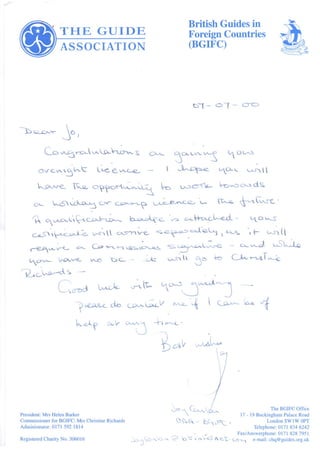 THE GUIDE
ASSOCIATION
British Guides in
Foreign Countries
(BGIFC)
07-07-00
Dear Jo,
Congratulations on gaining your
overnight licence - I hope you will
have the opportunity to work towards
a holiday or camp licence in the future.
A qualification badge is attached - your
certificate will arrive separately, as it will
require a Commissioners signature - and while
you have no DC - it will go to Christine
Richards -
Good luck with your guiding -
Please do contact me if I can be of
help at any time.
Best wishes
Joy
President: Mrs Helen Barker
Commissioner for BGIFC: Mrs Christine Richards
Administrator: 0171 592 1814
Registered Charity No. 306016
The BGIFC Office
17 - 19 Buckingham Palace Road
London SW1W 0PT
Telephone: 0171 834 6242
Fax/Answerphone: 0171 828 7951
e-mail: chq@guides.org.uk